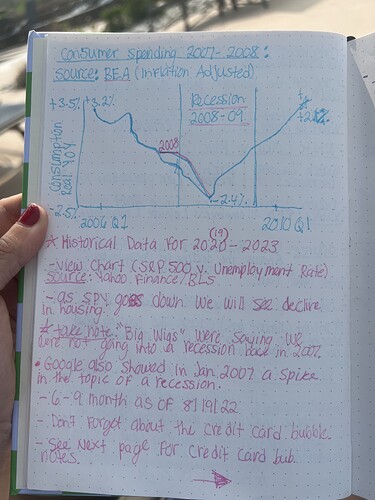 Consumer spending 2007-2008:
Source: BEA (Inflation Adjusted)
+3.5%
+3.2%
Recession
2008-09
Consumption
Real YOY
2008
-2.4%
-2.5%
2006 Q1
2010 Q1
(19)
* Historical Data for 2020-2023
- View Chart (S&P 500 v. Unemployment Rate)
Source: Yahoo Finance/BLS
- as SPY goes down we will see decline
in housing.
* take note: "Big Wigs" were saying we
were not going into a recession back in 2007.
• Google also showed in Jan 2007 a spike
in the topic of a recession.
- 6-9 month as of 8/19/22
- Don't forget about the credit card bubble.
- See Next page for credit card bub.
notes.